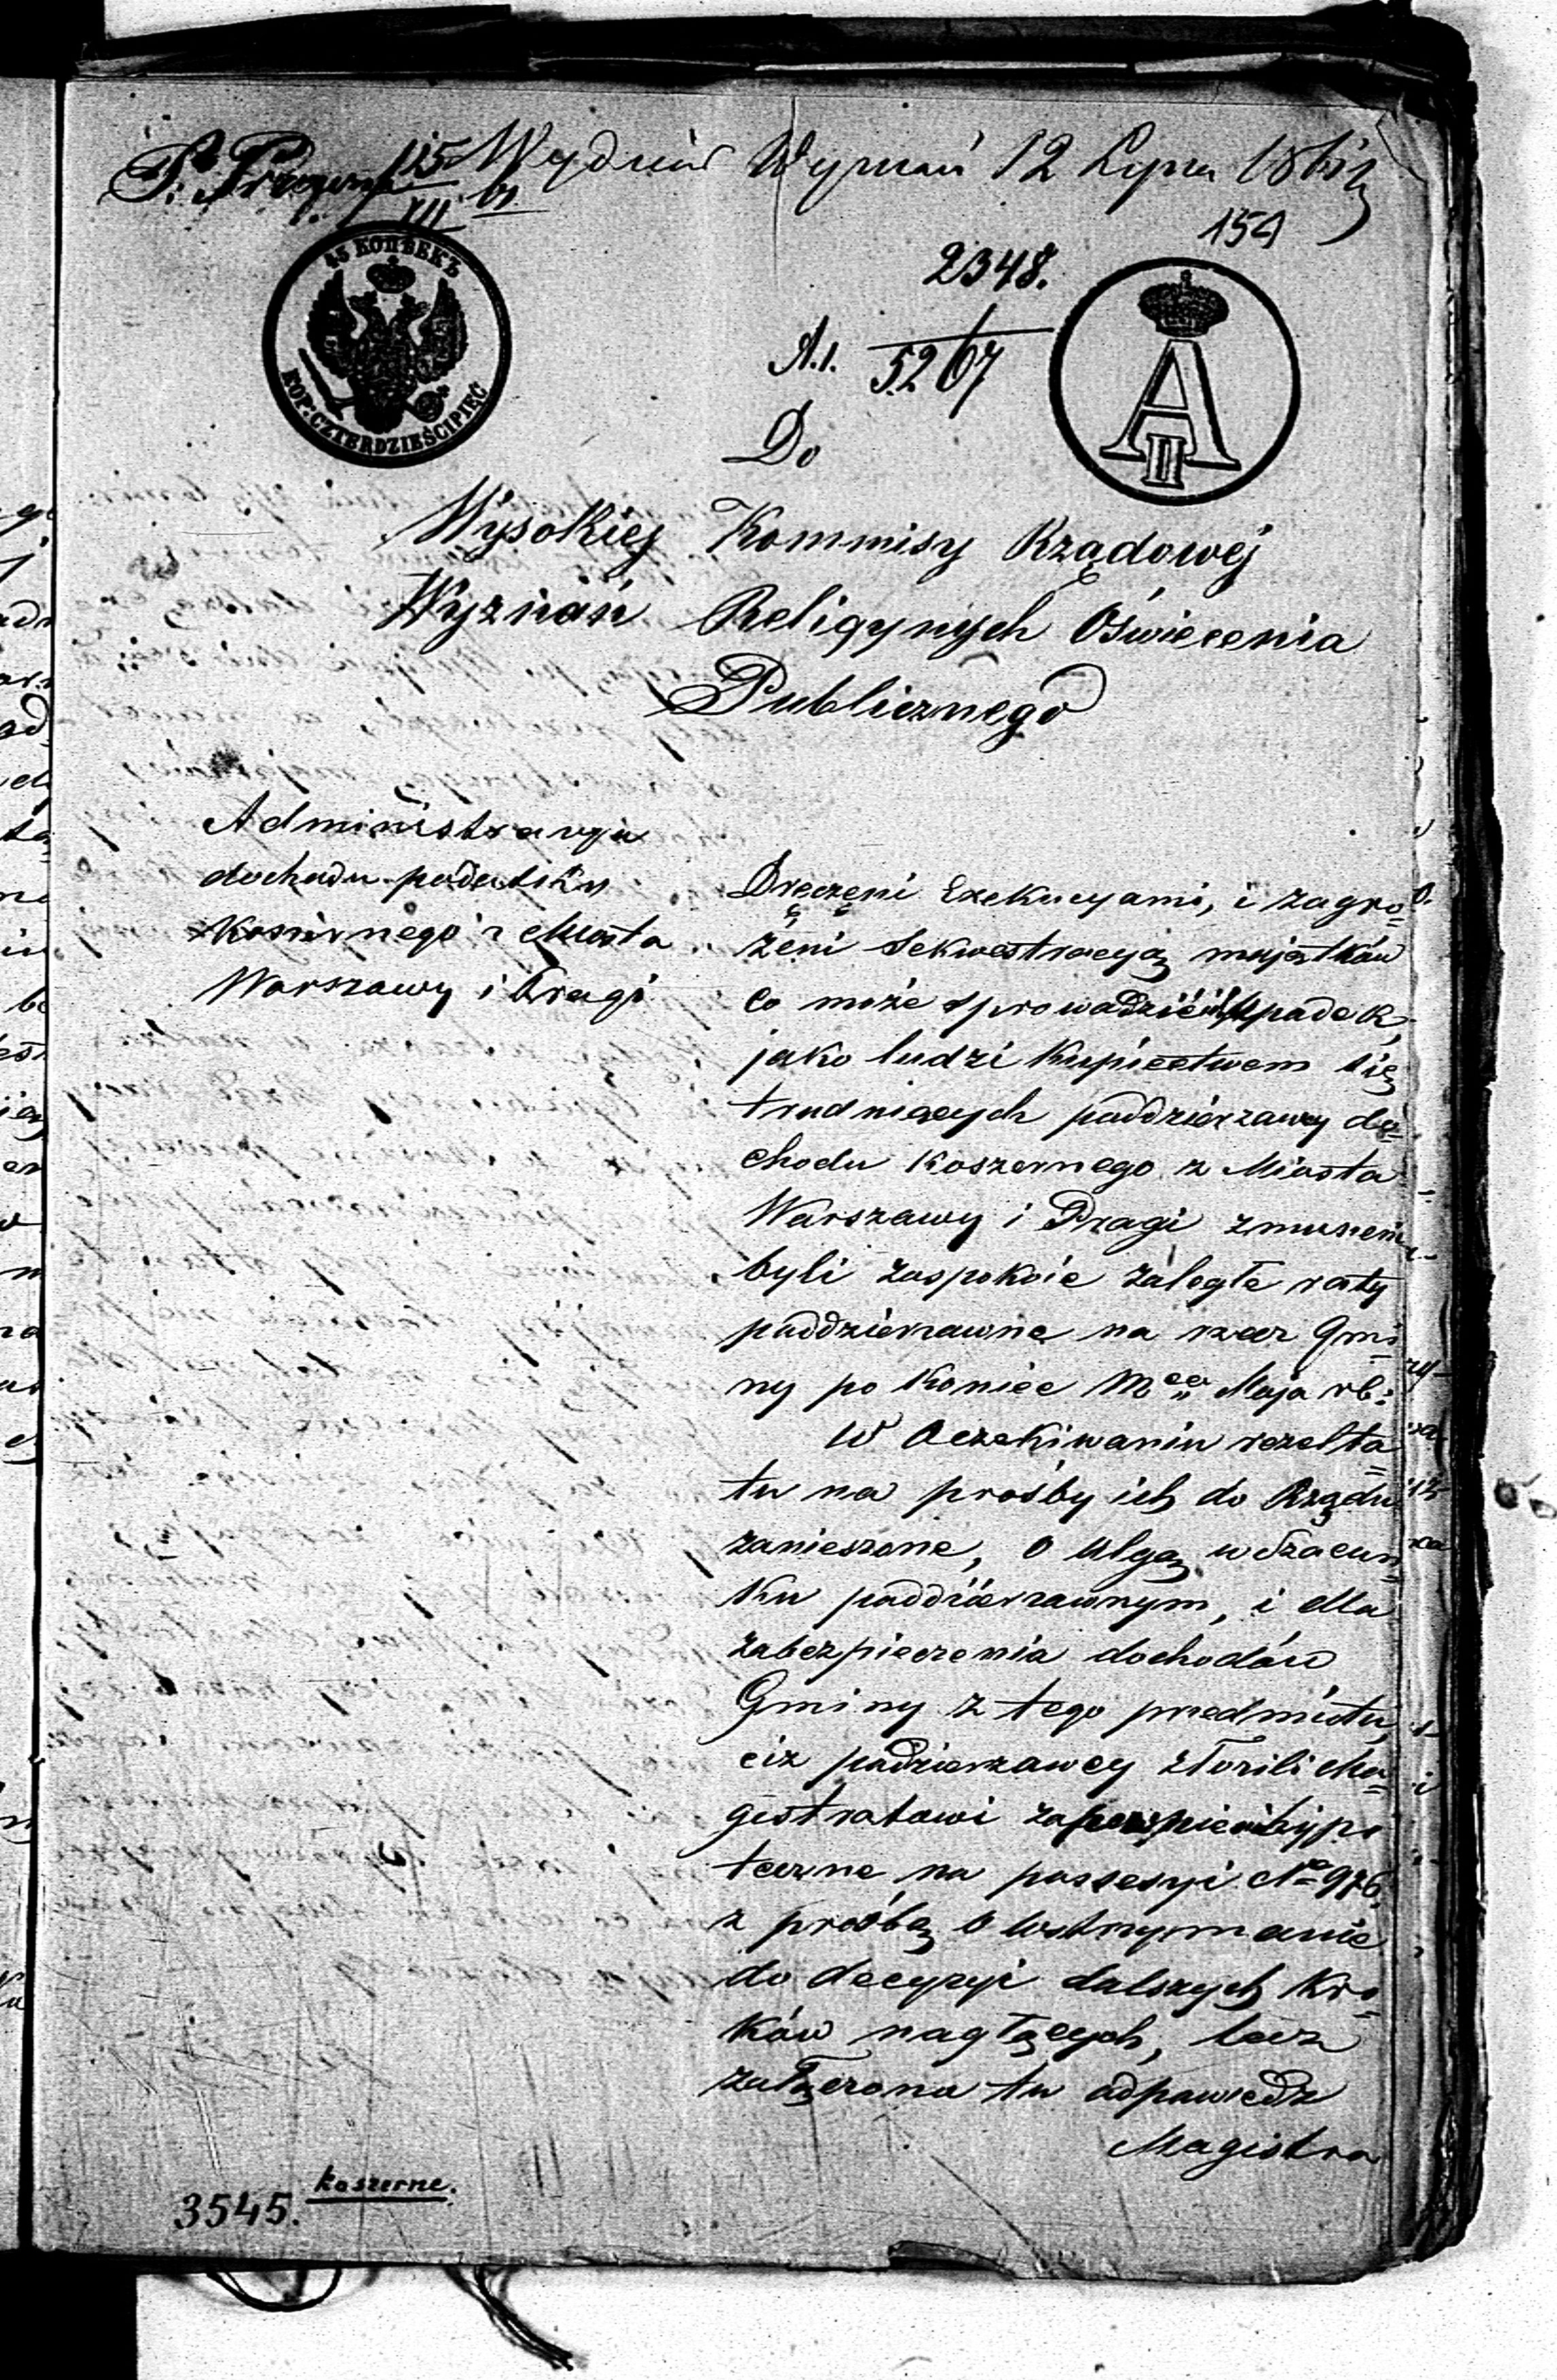 115 Wydział Wyznań 12 Lipca 1861
XII 61
154
45 КОПѢЕКЪ
KOP: CZTERDZIEŚCI PIĘĆ
2348.
A.1. 5267
A II
Do
Wysokiej Kommisy Rządowéj
Wyznań Religynych Oświecenia
Publicznego
Administracyja
dochodu podatku
Koszernego z Miasta
Warszawy i Pragi
Dręczeni Exekucyami, i zagro=
żeni Sekwestracyją majątków
co może sprowadzić upadek,
jako ludzi Kupiectwem się
trudniących poddzierżawcy do=
chodu Koszernego z Miasta
Warszawy i Pragi zmuszeni
byli zaspokoić zaległe raty
poddzierżawne na rzecz Gmi=
ny po Koniec Mca Maja rb:
W Oczekiwaniu rezulta=
tu na prośby ich do Rządu
zanieszone, o Ulgę w Szacun=
ku poddzierżawnym, i dla
zabezpieczenia dochodów
Gminy z tego przedmiotu,
ciż podzierzawcy złożili Ma=
gistratowi hypo
teczne na possesyi No 976,
z prośbą o wstrzymanie
do decyzyi dalszych Kro=
ków naglących, lecz
załączona tu odpowiedz
Magistra
koszerne.
3545.